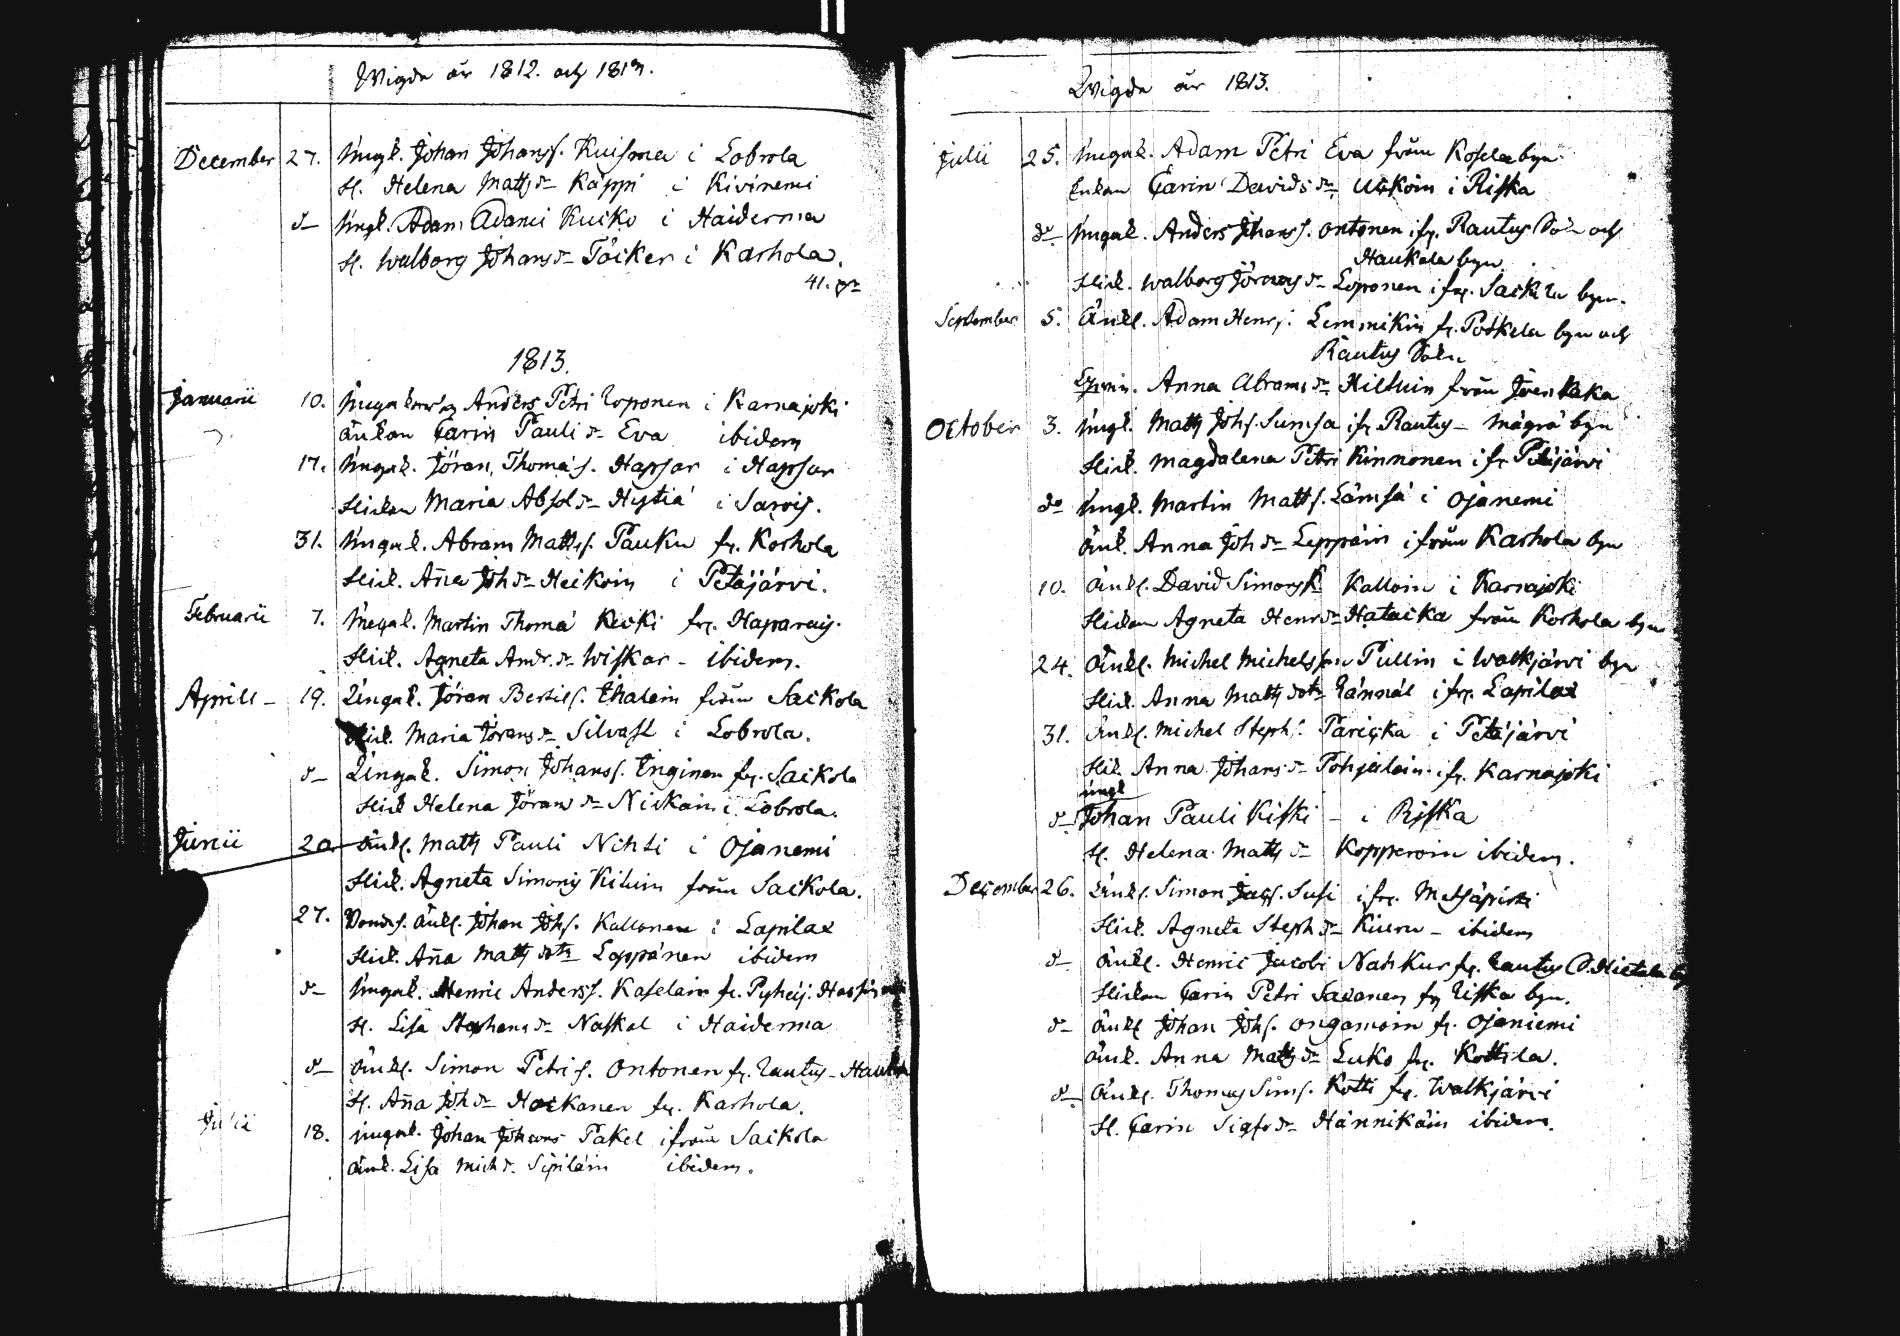 Wigde år 1812. och 1813.
December 27. Ungk. Johan Johanss. Kuisma i Lobrola
H. Helena Matts dr Käppi i Kivinemi
d— Ungk. Adam Adami Kuiko i Haiderma
H. Walborg Johans dr Töiker i Karhola.
41. pr
1813.
Januarii 10. Anders Petri Loponen i Karnajoki
änkan Carin Pauli dr Eva ibidem
17. Ungk. Jöran Thomæ s. Hapsar i Hapsar
Hickan Maria Absol dr Hystiä i
31. Ungk. Abram Matts s. Pauku fr. Korhola
Hick. Aña Joh dr Heikoin i Petäjärvi.
Februarii 7. Ungk. Martin Thomæ Kecki fr.
Hick. Agneta Andr. dr Wiskar - ibidem.
Aprill - 19. Ungk. Jöran Bertils. Ihalain från Saikola
Hick. Maria Jörans dr Silvast i Lobrola.
d— Ungk. Simon Johanss. Inginen fr. Saikola
Hick Helena Jörans dr Nickain i Lobrola.
Junii 20 Änkl. Matts Pauli Nihti i Ojanemi
Hick. Agneta Simons från Saikola.
27. Änkl. Johan Johs. Kallonen i Lapilax
Hick. Aña Matts dotr Loppänen ibidem
d— Ungk. Henric Anderss. Kaselain fr.
H. Lisa Stephans dr Naskal i Haiderma
d— Änkl. Simon Petri s. Ontonen fr. Rautus -
H. Aña Joh dr Hockanen fr. Karhola.
Julii 18. Ungk. Johan Johans Pakel ifrån Saikola
Änk. Lisa Mich dr. Sipiläin ibidem.
Wigde år 1813.
Julii 25. Ungk. Adam Petri Eva från Kosela byn
Enkan Carin Davids dr i Riska
do Ungk. Anders Johanss. Ontonen ifr. Rautus Sokn och
Haukela byn
Hick. Walborg Jörans dr Loponen ifr. byn.
September 5. Änkl. Adam Henr s. Lemmikin fr. Potkela byn och
Rautus Sokn
Anna Abrams dr Hiltuin från
October 3. Ungk. Matts Johs. Sumsa ifr Rautus - Mägrä byn
Hick. Magdalena Petri Kinnonen ifr Petäjärvi
do Ungk. Martin Matts. Lämsä i Ojanemi
Änk. Anna Joh dr Leppäin ifrån Karhola byn
10. Änkl. David Simons Kalloin i Karnajoki
Hickan Agneta Henr dr Hataika från Korhola byn
24. Änkl. Michel Michelsson Pullin i Walkjärvi by
Hick. Anna Matts dotr Rännäl ifr. Lapilax
31. Änkl. Michel Steph s. Parickka i Petäjärvi
Hick. Anna Johans dr Pohjalain ifr. Karnajoki
d— ungk Johan Pauli Kiski - i Riska
H. Helena Matts dr Kopperoin ibidem.
December 26. Änkl. Simon Jacs. Susi ifr. Metsäpirti
Hick. Agneta Steph dr Kiuru - ibidem
d— Änkl. Henric Jacobi Nahkur fr. Rautus
Hickan Carin Petri Savanen fr Riska byn.
d— Änkl Johan Johs. Ongamoin fr. Ojaniemi
Änk. Anna Matts dr Luko fr. Kottila.
d— Änkl. Thomas Sims. Kotti fr. Walkjärvi
H. Carin Sigfr dr Hännikäin ibidem.